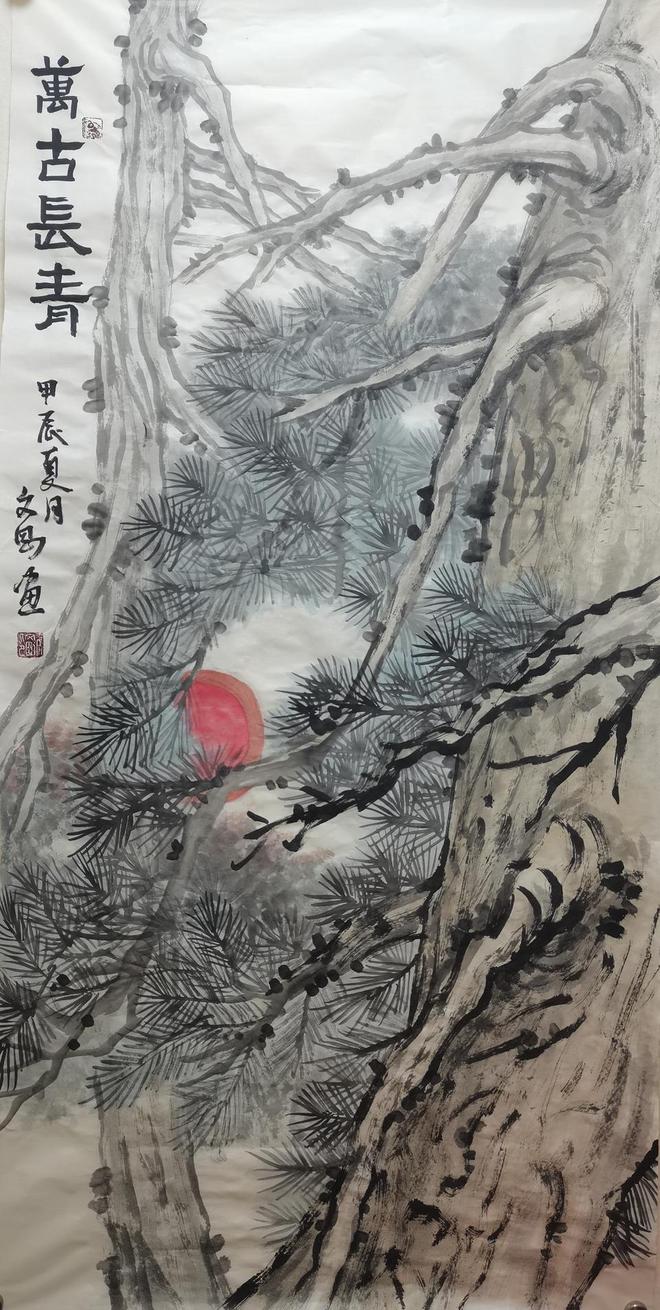 萬古長青
甲辰夏月
文 画